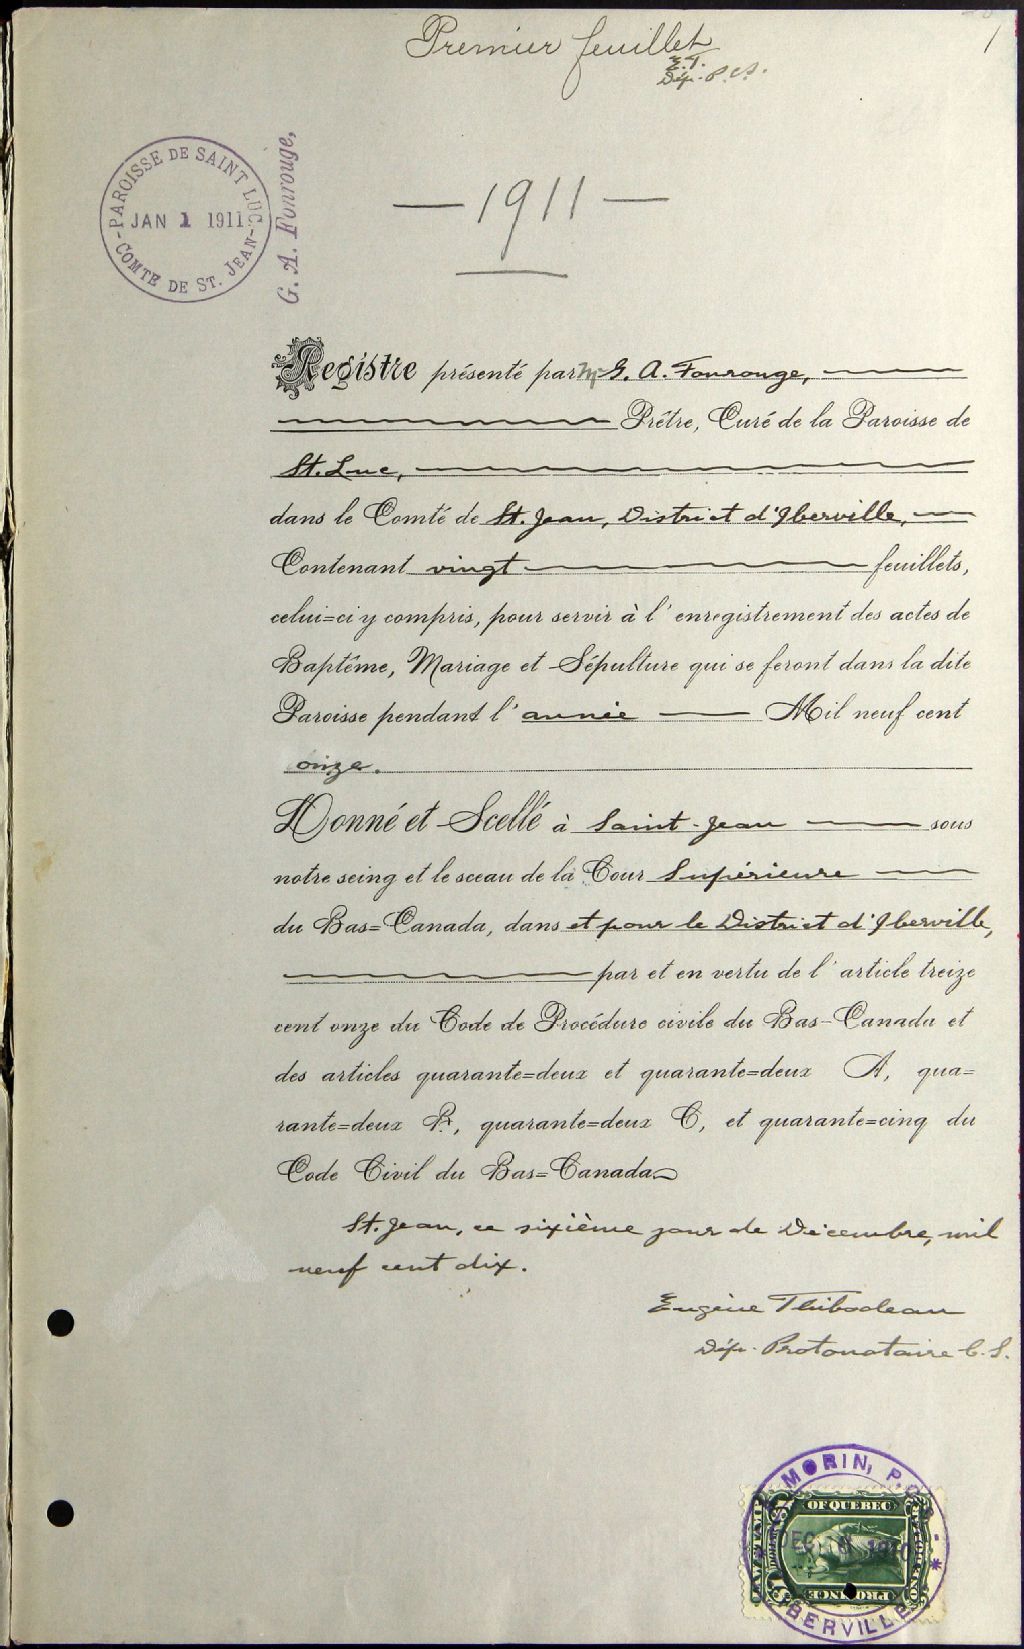 Premier feuillet
E.T.
Dép. P.C.S.
1
PAROISSE DE SAINT LUC
JAN 1 1911
COMTE DE ST. JEAN
G. A. Fonrouge,
— 1911 —
Registre présenté par Mr G. A. Fonrouge,
Prêtre, Curé de la Paroisse de
St. Luc,
dans le Comté de St. Jean, District d'Iberville,
Contenant vingt feuillets,
celui=ci y compris, pour servir à l'enregistrement des actes de
Baptême, Mariage et Sépulture qui se feront dans la dite
Paroisse pendant l'année Mil neuf cent
onze.
Donné et Scellé à Saint-Jean sous
notre seing et le sceau de la Cour Supérieure
du Bas=Canada, dans et pour le District d'Iberville,
par et en vertu de l'article treize
cent onze du Code de Procédure civile du Bas-Canada et
des articles quarante=deux et quarante=deux A, qua=
rante=deux B, quarante=deux C, et quarante=cinq du
Code Civil du Bas=Canada
St. Jean, ce sixième jour de Décembre, mil
neuf cent dix.
Eugène Thibodeau
Dép. Protonotaire C. S.
MORIN, P.C.S.
OF QUEBEC
LAW STAMP
DEC 1910
PROVINCE
IBERVILLE